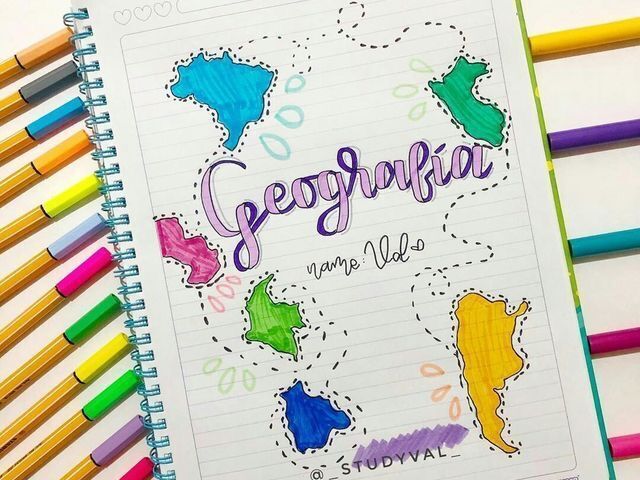 Geografía
name: Val
@_STUDYVAL_